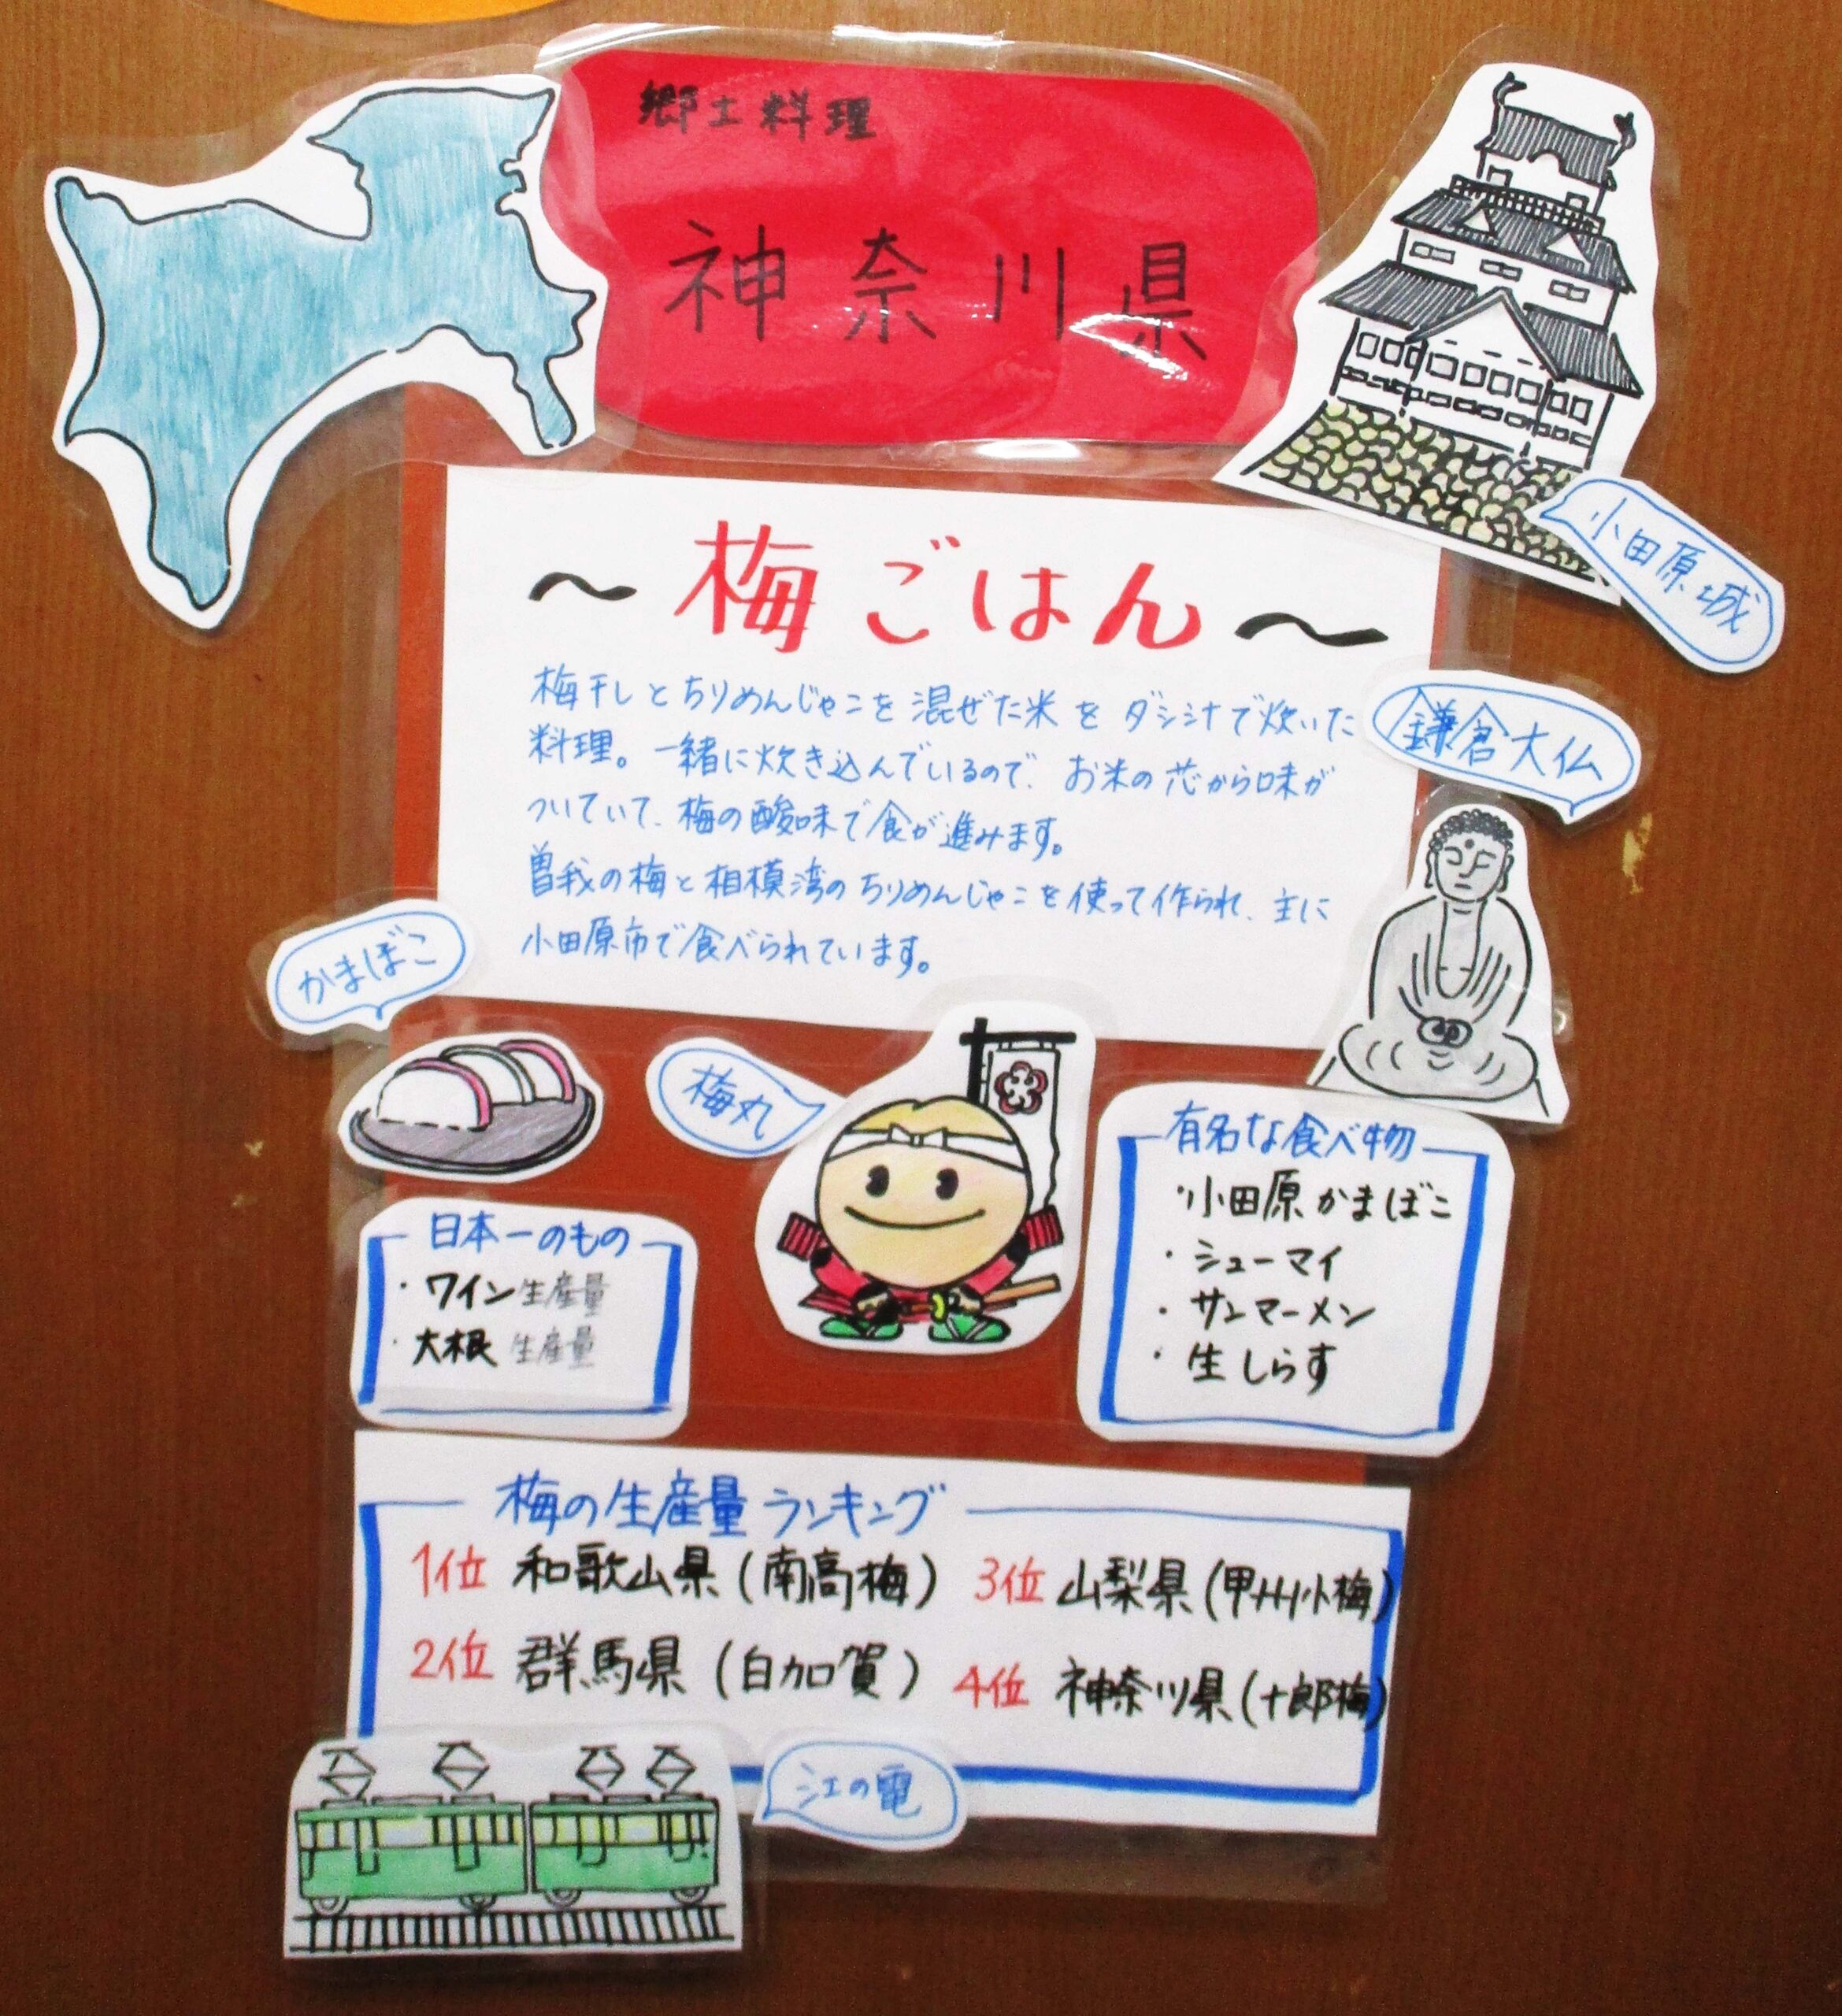 郷土料理
神奈川県
小田原城
～梅ごはん～
梅干しとちりめんじゃこを混ぜた米をダシ汁で炊いた
料理。一緒に炊き込んでいるので、お米の芯から味が
ついていて、梅の酸味で食が進みます。
曽我の梅と相模湾のちりめんじゃこを使って作られ、主に
小田原市で食べられています。
鎌倉大仏
かまぼこ
梅丸
日本一のもの
・ワイン生産量
・大根 生産量
有名な食べ物
・小田原かまぼこ
・シューマイ
・サンマーメン
・生しらす
梅の生産量ランキング
1位 和歌山県(南高梅)
2位 群馬県(白加賀)
3位 山梨県(甲州小梅)
4位 神奈川県(十郎梅)
江の電